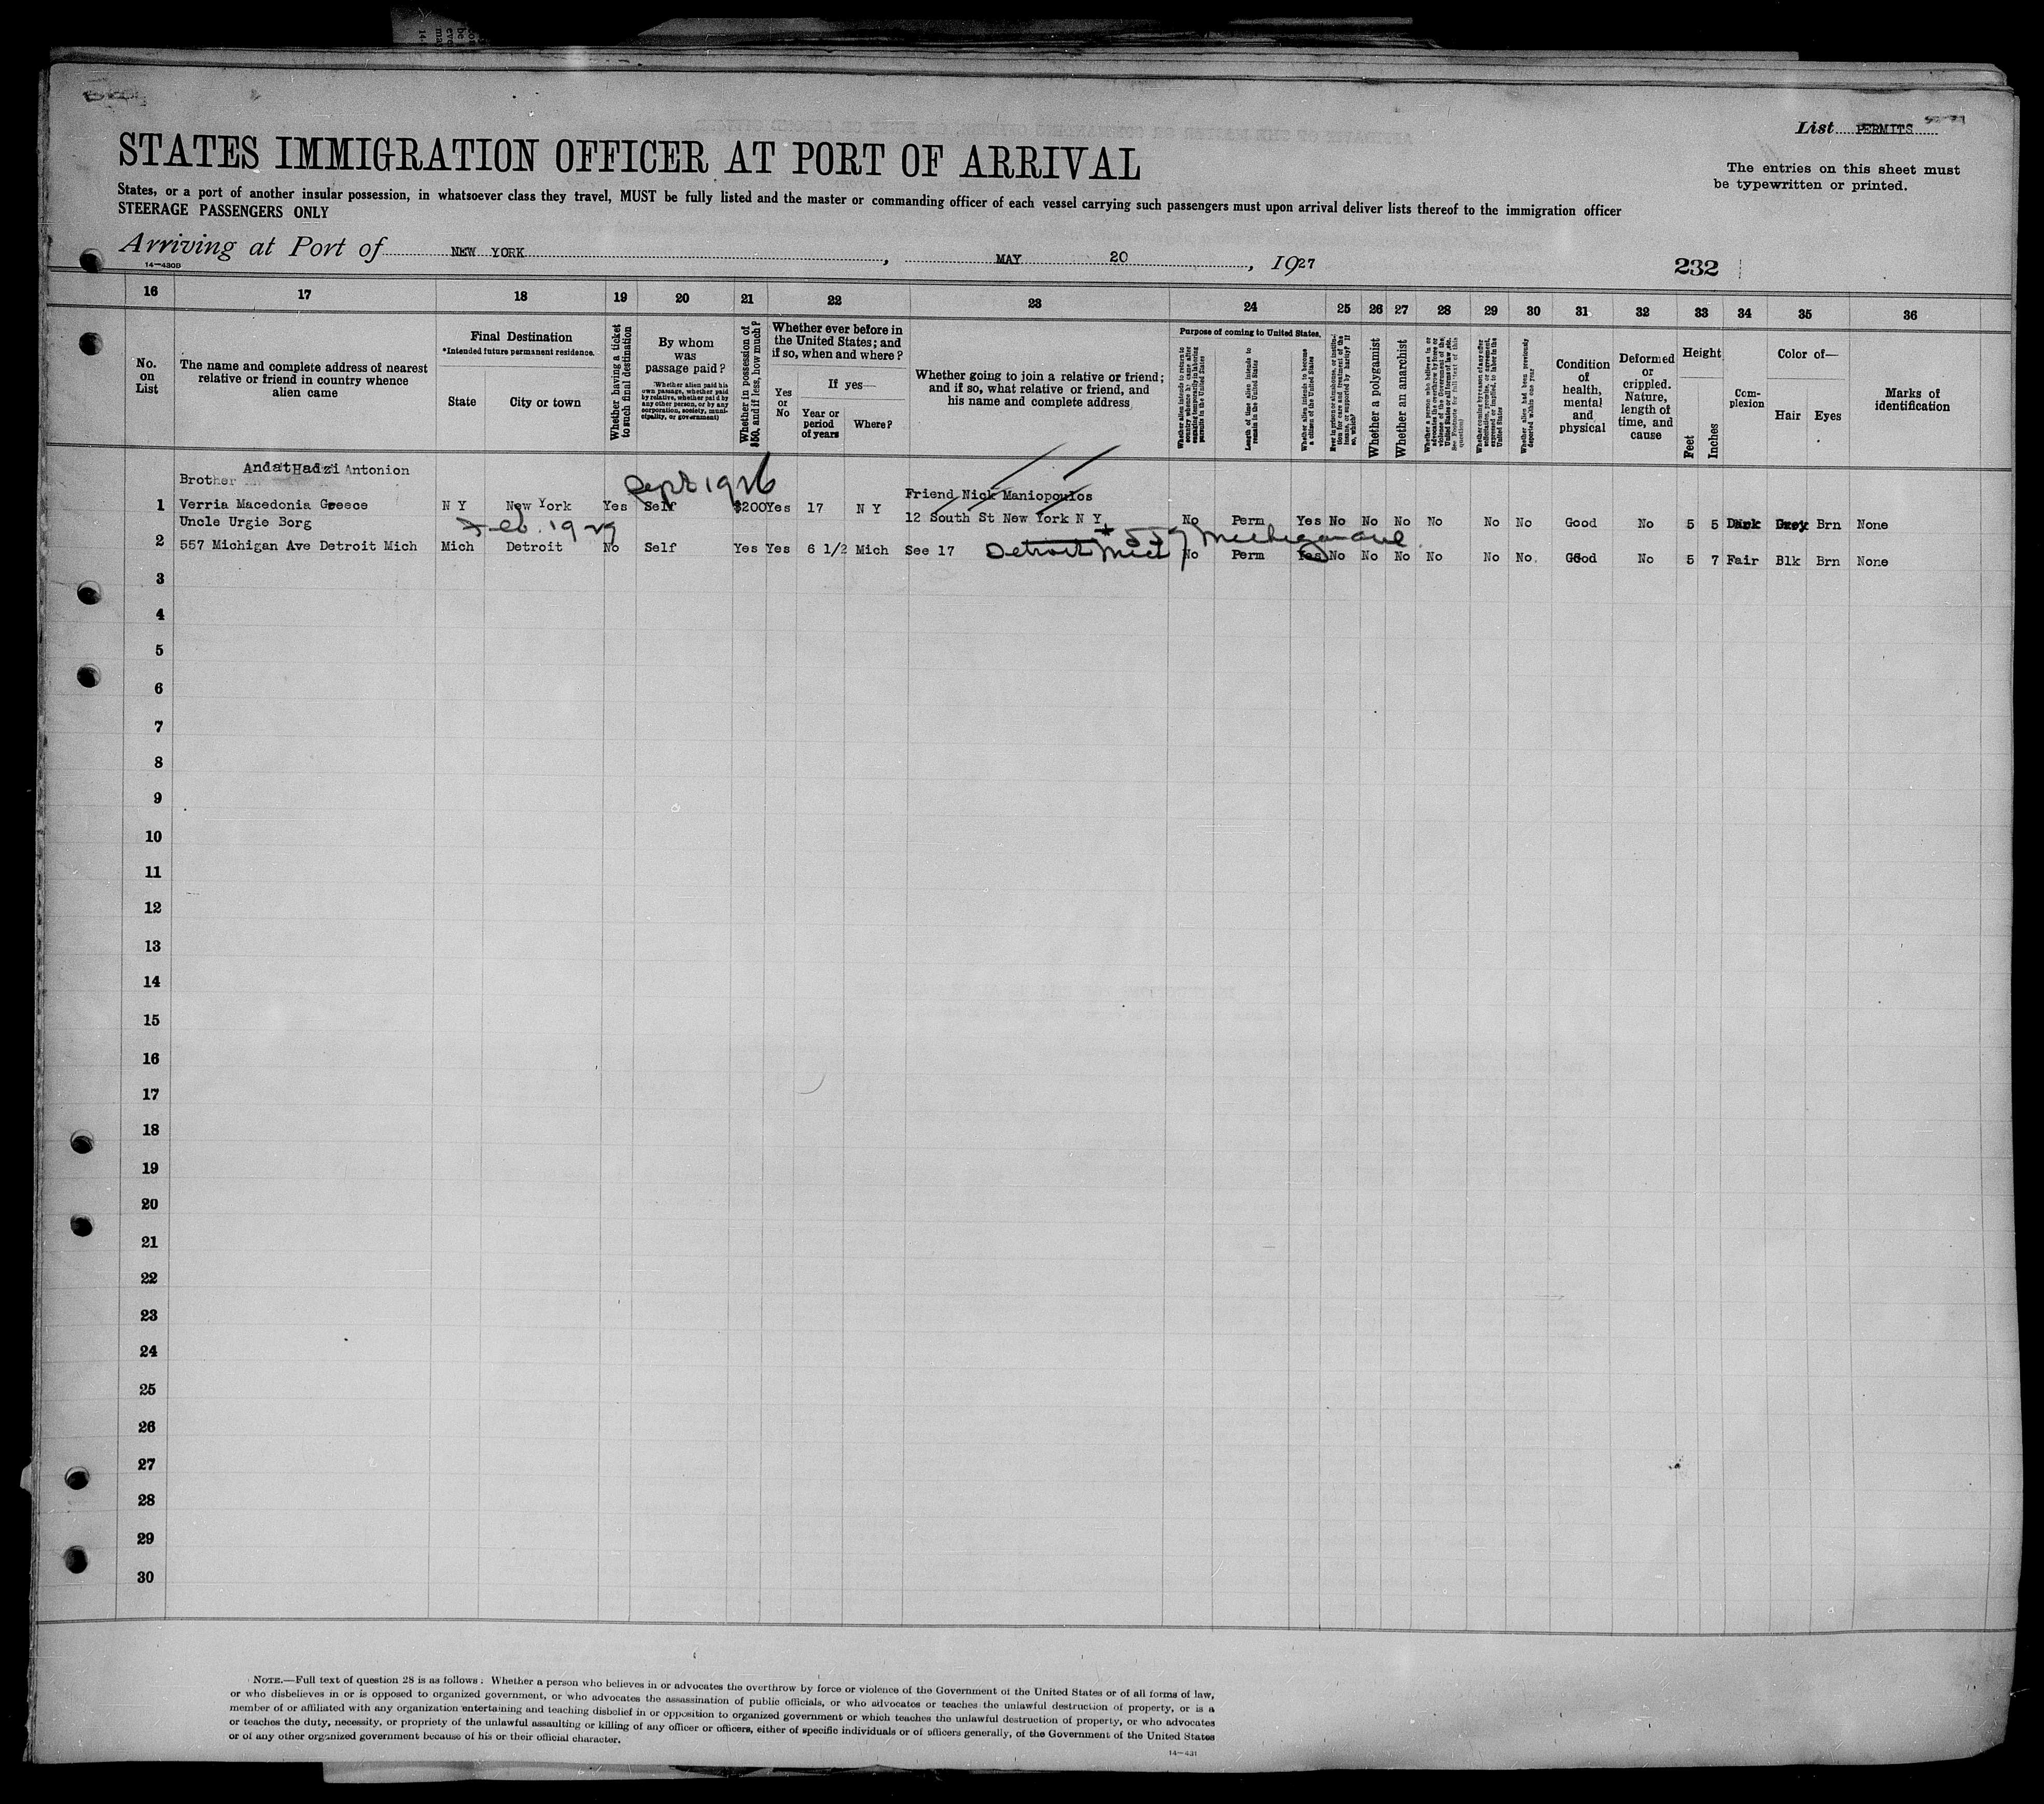 List PERMITS
STATES IMMIGRATION OFFICER AT PORT OF ARRIVAL
The entries on this sheet must
be typewritten or printed.
States, or a port of another insular possession, in whatsoever class they travel, MUST be fully listed and the master or commanding officer of each vessel carrying such passengers must upon arrival deliver lists thereof to the immigration officer
STEERAGE PASSENGERS ONLY
Arriving at Port of NEW YORK, MAY 20, 1927
14-430B
232
16 17 18 19 20 21 22 23 24 25 26 27 28 29 30 31 32 33 34 35 36
No.
on
List
The name and complete address of nearest
relative or friend in country whence
alien came
Final Destination
*Intended future permanent residence.
State
City or town
Whether having a ticket
to such final destination
By whom
was
passage paid?
(Whether alien paid his
own passage, whether paid
by relative, whether paid by
any other person, or by any
corporation, society, muni-
cipality, or government)
Whether in possession of
$50, and if less, how much?
Whether ever before in
the United States; and
if so, when and where?
Yes
or
No
If yes—
Year or
period
of years
Where?
Whether going to join a relative or friend;
and if so, what relative or friend, and
his name and complete address
Purpose of coming to United States.
Whether alien intends to return to
country whence he came after
engaging temporarily in laboring
pursuits in the United States
Length of time alien intends to
remain in the United States
Whether alien intends to become
a citizen of the United States
Ever in prison or almshouse, or institu-
tion for care and treatment of the
insane, or supported by charity? If
so, which?
Whether a polygamist
Whether an anarchist
Whether a person who believes in or
advocates the overthrow by force or
violence of the Government of the
United States or all forms of law, etc.
(See Footnote for full text of this
question)
Whether coming by reason of any offer,
solicitation, promise, or agreement,
expressed or implied, to labor in the
United States
Whether alien had been previously
deported within one year
Condition
of
health,
mental
and
physical
Deformed
or
crippled.
Nature,
length of
time, and
cause
Height
Feet
Inches
Com-
plexion
Color of—
Hair
Eyes
Marks of
identification
Andat Hadzi Antonion
Brother
Sept 1926
Friend Nick Maniopoulos
1 Verria Macedonia Greece N Y New York Yes Self $200 Yes 17 N Y
12 South St New York N Y No Perm Yes No No No No No No Good No 5 5 Dark Grey Brn None
Uncle Urgie Borg
Feb. 1929
+ 557 Michigan ave
2 557 Michigan Ave Detroit Mich Mich Detroit No Self Yes Yes 6 1/2 Mich See 17 Detroit Mich No Perm Yes No No No No No No. Good No 5 7 Fair Blk Brn None
3
4
5
6
7
8
9
10
11
12
13
14
15
16
17
18
19
20
21
22
23
24
25
26
27
28
29
30
NOTE.—Full text of question 28 is as follows: Whether a person who believes in or advocates the overthrow by force or violence of the Government of the United States or of all forms of law,
or who disbelieves in or is opposed to organized government, or who advocates the assassination of public officials, or who advocates or teaches the unlawful destruction of property, or is a
member of or affiliated with any organization entertaining and teaching disbelief in or opposition to organized government or which teaches the unlawful destruction of property, or who advocates
or teaches the duty, necessity, or propriety of the unlawful assaulting or killing of any officer or officers, either of specific individuals or of officers generally, of the Government of the United States
or of any other organized government because of his or their official character.
14-431